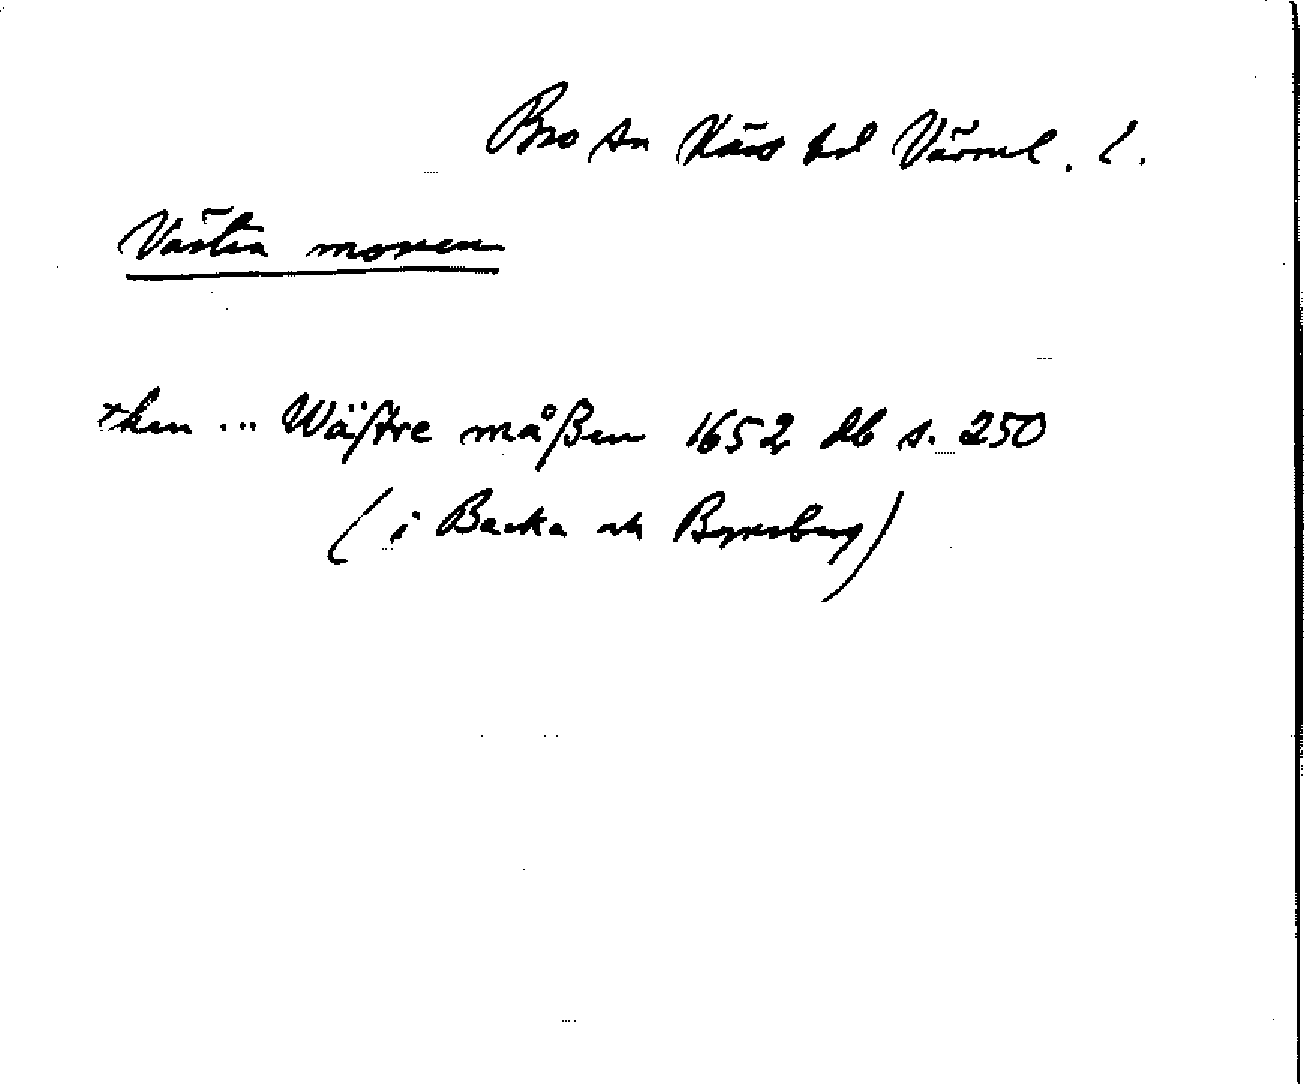 Bro sn Näs hd Värml. l.
Västra mossen
then ... Wästre måßen 1652 db s. 250
(i Backa och)